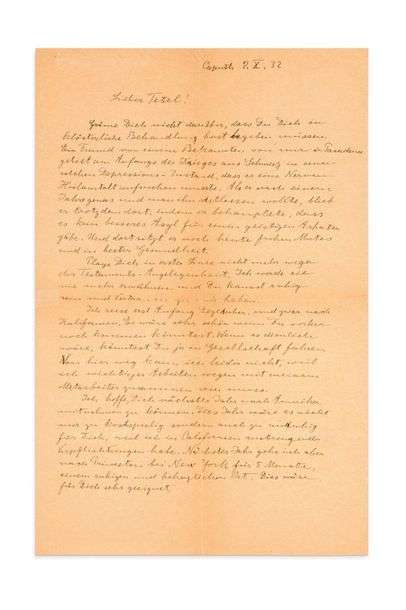 Caputh 9. X. 32
Lieber Tetel!
Gräme Dich nicht darüber, dass Du Dich in
klösterliche Behandlung hast begeben müssen.
Ein Freund von einem Bekannten von mir in Pasadena
geriet am Anfange des Krieges aus Schmerz in einen
solchen Depressions-Zustand, dass er eine Nerven-
Heilanstalt aufsuchen musste. Als er nach einem
Jahre genas und man ihn entlassen wollte, blieb
er trotzdem dort, indem er behauptete, dass
es kein besseres Asyl für einen geistigen Arbeiter
gäbe. Und dort sitzt er noch heute frohen Mutes
und in bester Gesundheit.
Plage Dich in erster Linie nicht mehr wegen
der Testaments-Angelegenheit. Ich werde sie
nie mehr erwähnen, und Du kannst ruhig
sein und Vertrauen zu mir haben.
Ich reise erst Anfang Dezember, und zwar nach
Kalifornien. Es wäre sehr schön wenn Du vorher
noch kommen könntest. Wenn es
wäre, könntest Du ja in Gesellschaft fahren.
Von hier weg kann ich leider nicht, weil
ich wichtiger Arbeiten wegen mit meinem
Mitarbeiter zusammen sein muss.
Ich hoffe, Dich nächstes Jahr nach Amerika
mitnehmen zu können. Dies Jahr wäre es nicht
nur zu kostspielig sondern auch zu unruhig
für Dich, weil ich in Californien anstrengende
Verpflichtungen habe. Nächstes Jahr gehe ich aber
nach Princeton bei New York für 5 Monate,
einem ruhigen und behaglichen Ort. Dies wäre
für Dich sehr geeignet.